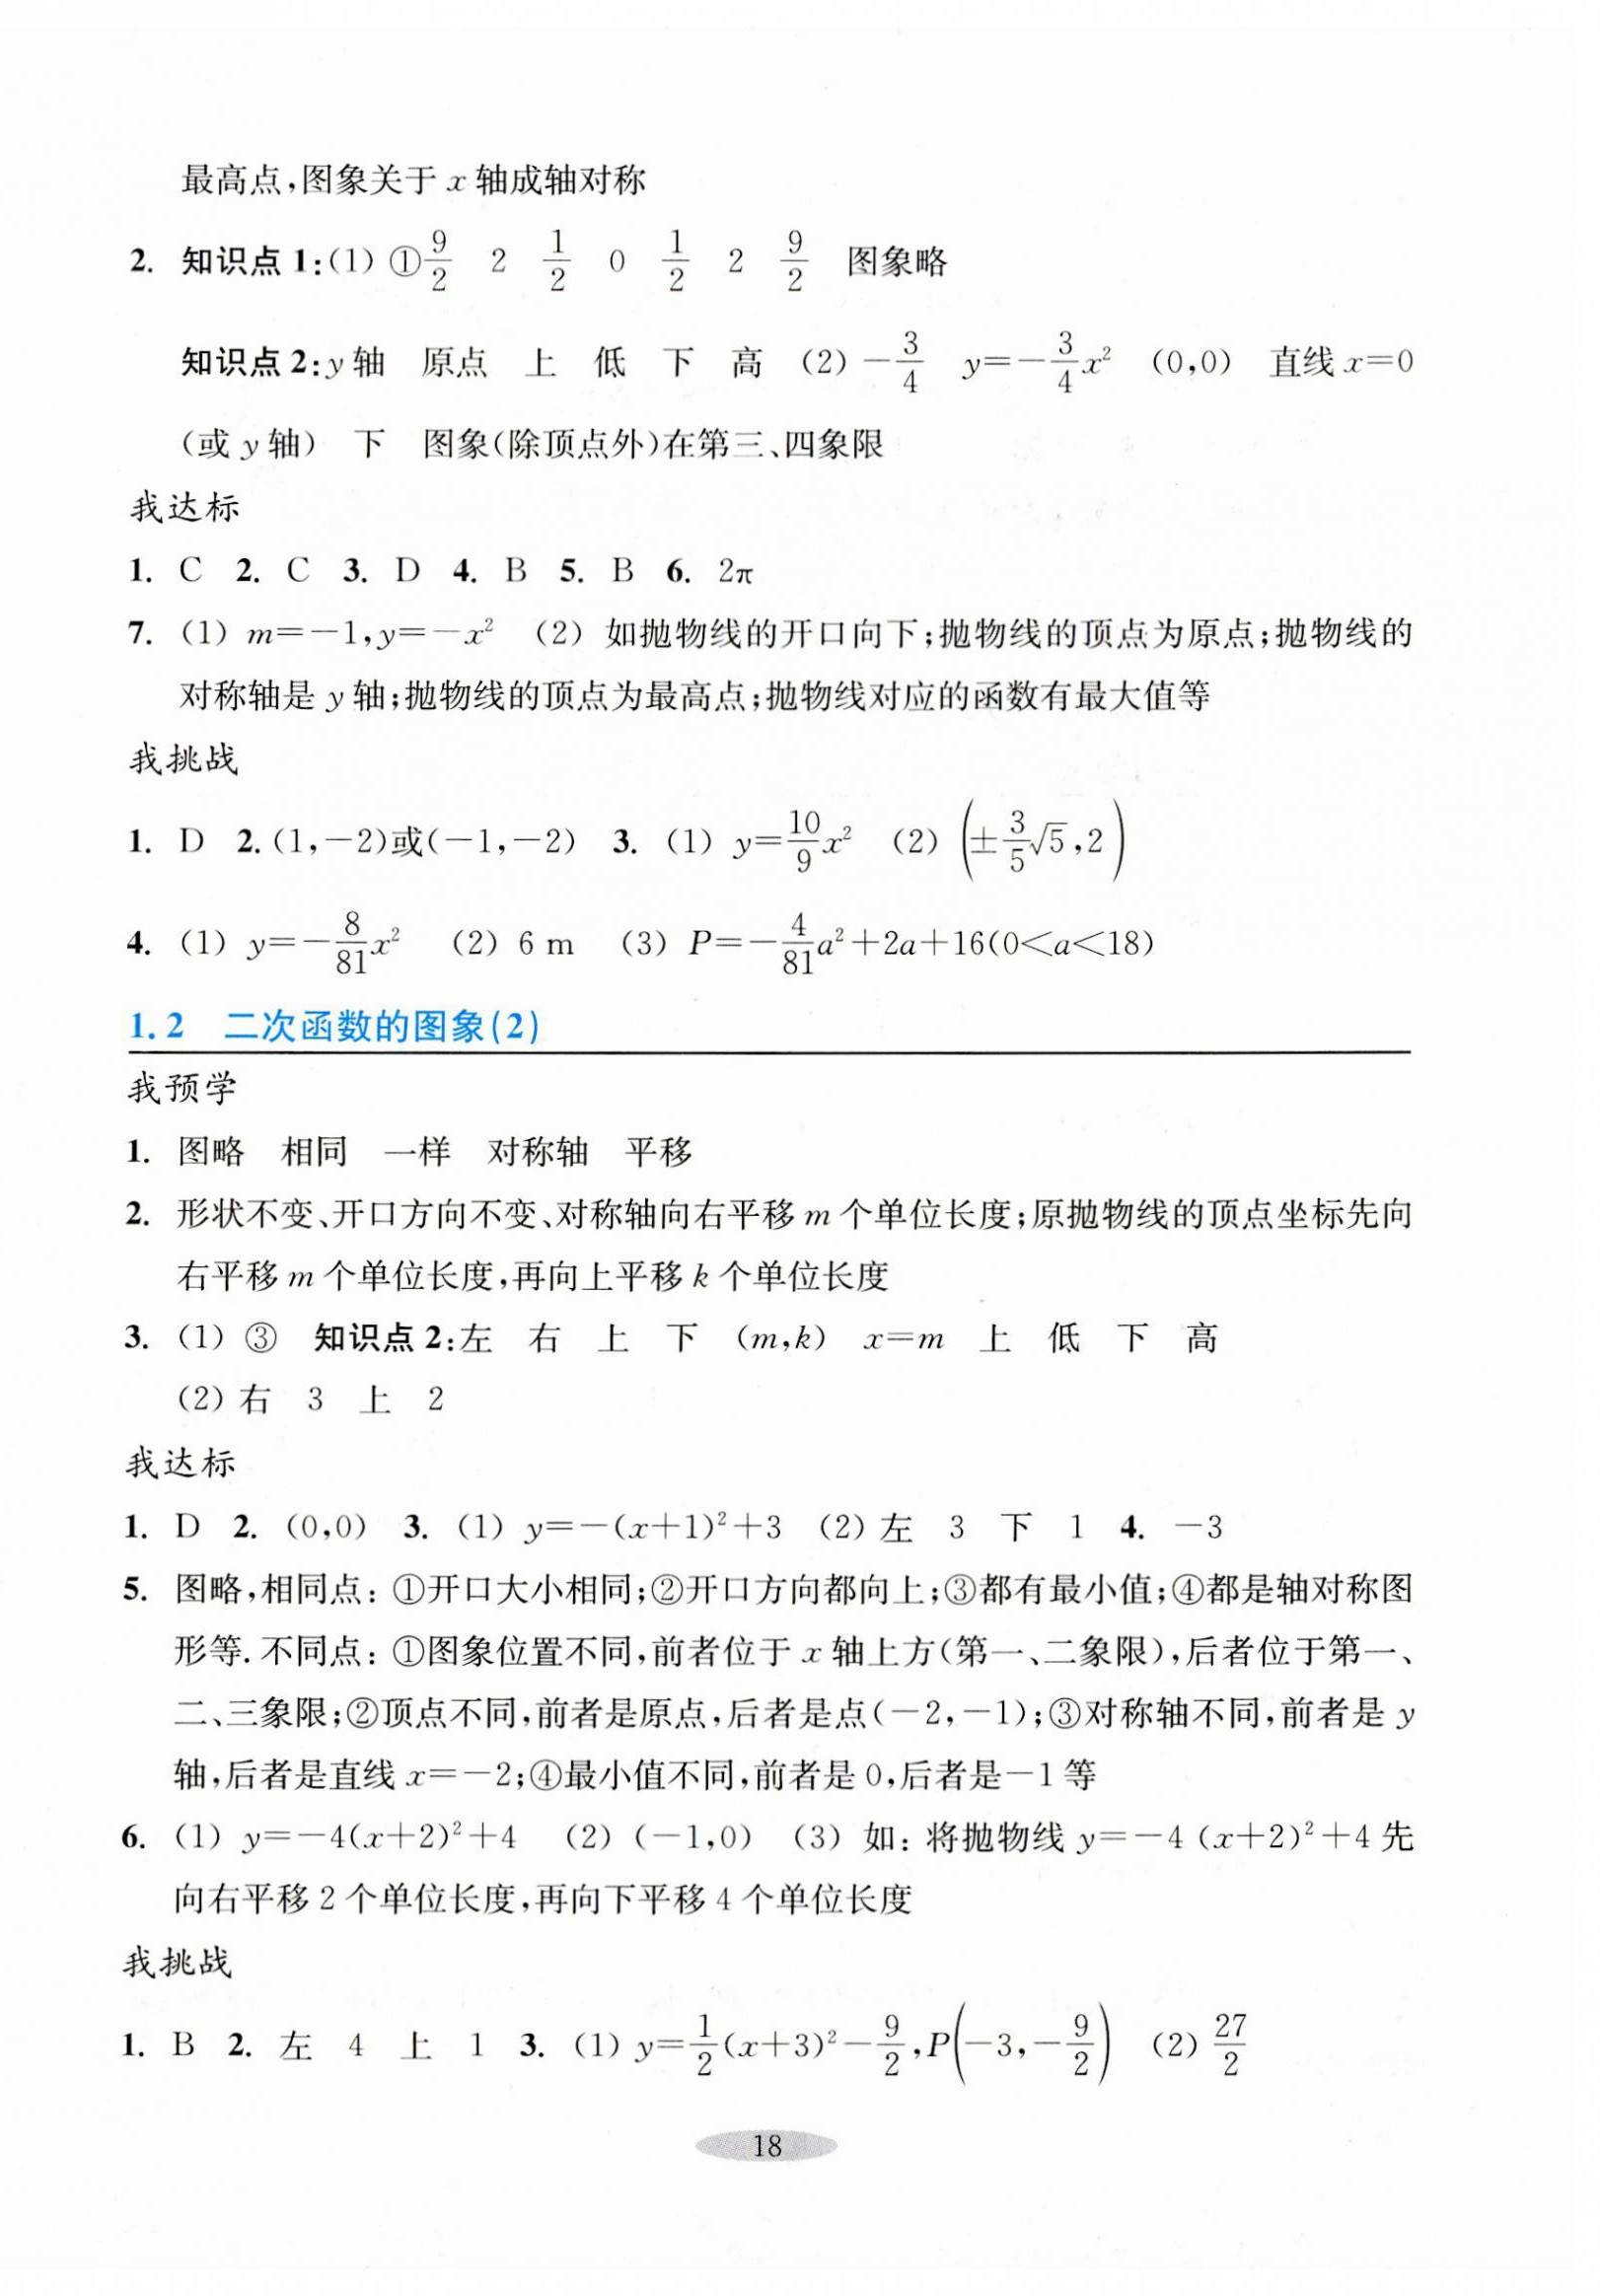 最高点,图象关于 x 轴成轴对称
2. 知识点 1:(1) ①9/2 2 1/2 0 1/2 2 9/2 图象略
知识点 2:y 轴 原点 上 低 下 高 (2) −3/4 y=−3/4x² (0,0) 直线 x=0
(或 y 轴) 下 图象(除顶点外)在第三、四象限
我达标
1. C 2. C 3. D 4. B 5. B 6. 2π
7. (1) m=−1,y=−x² (2) 如抛物线的开口向下;抛物线的顶点为原点;抛物线的
对称轴是 y 轴;抛物线的顶点为最高点;抛物线对应的函数有最大值等
我挑战
1. D 2. (1,−2)或(−1,−2) 3. (1) y=10/9x² (2) (±3/5√5,2)
4. (1) y=−8/81x² (2) 6 m (3) P=−4/81a²+2a+16(0<a<18)
1.2 二次函数的图象(2)
我预学
1. 图略 相同 一样 对称轴 平移
2. 形状不变、开口方向不变、对称轴向右平移 m 个单位长度;原抛物线的顶点坐标先向
右平移 m 个单位长度,再向上平移 k 个单位长度
3. (1) ③ 知识点 2:左 右 上 下 (m,k) x=m 上 低 下 高
(2) 右 3 上 2
我达标
1. D 2. (0,0) 3. (1) y=−(x+1)²+3 (2) 左 3 下 1 4. −3
5. 图略,相同点: ①开口大小相同;②开口方向都向上;③都有最小值;④都是轴对称图
形等. 不同点: ①图象位置不同,前者位于 x 轴上方(第一、二象限),后者位于第一、
二、三象限;②顶点不同,前者是原点,后者是点(−2,−1);③对称轴不同,前者是 y
轴,后者是直线 x=−2;④最小值不同,前者是 0,后者是−1 等
6. (1) y=−4(x+2)²+4 (2) (−1,0) (3) 如: 将抛物线 y=−4 (x+2)²+4 先
向右平移 2 个单位长度,再向下平移 4 个单位长度
我挑战
1. B 2. 左 4 上 1 3. (1) y=1/2(x+3)²−9/2,P(−3,−9/2) (2) 27/2
18